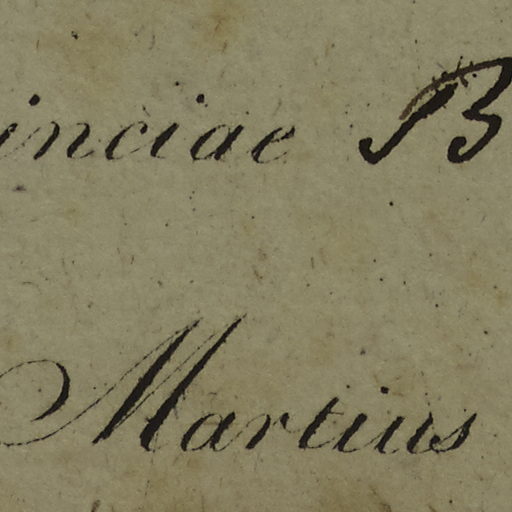 inciae B
Martius